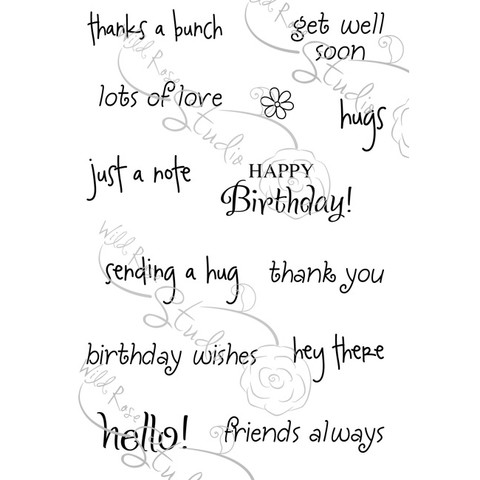 thanks a bunch
get well
soon
lots of love
hugs
just a note
HAPPY
Birthday!
sending a hug
thank you
birthday wishes
hey there
hello!
friends always
Wild Rose
Studio
Wild Rose
Studio
Wild Rose
Studio
Wild Rose
Studio